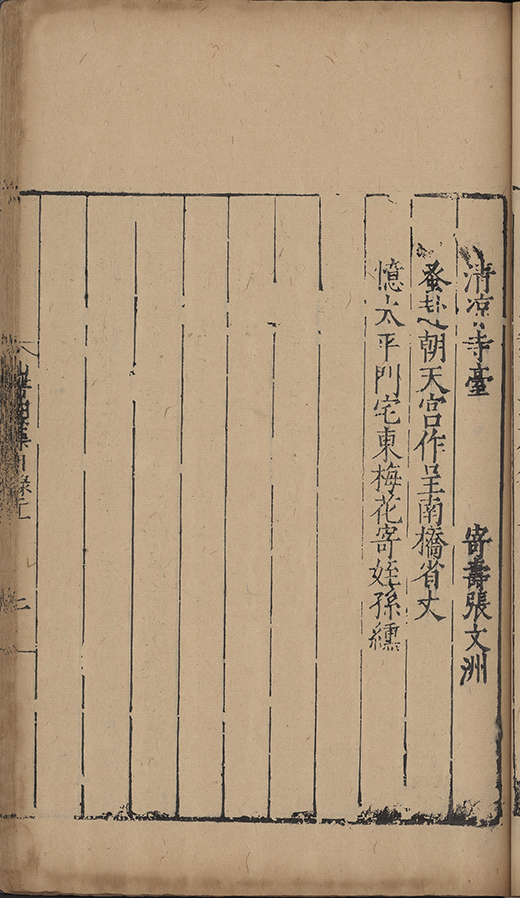 清凉寺臺 寄壽張文洲
蚤赴朝天宮作呈南橋省丈
憶太平門宅東梅花寄姪孫纁
集目錄